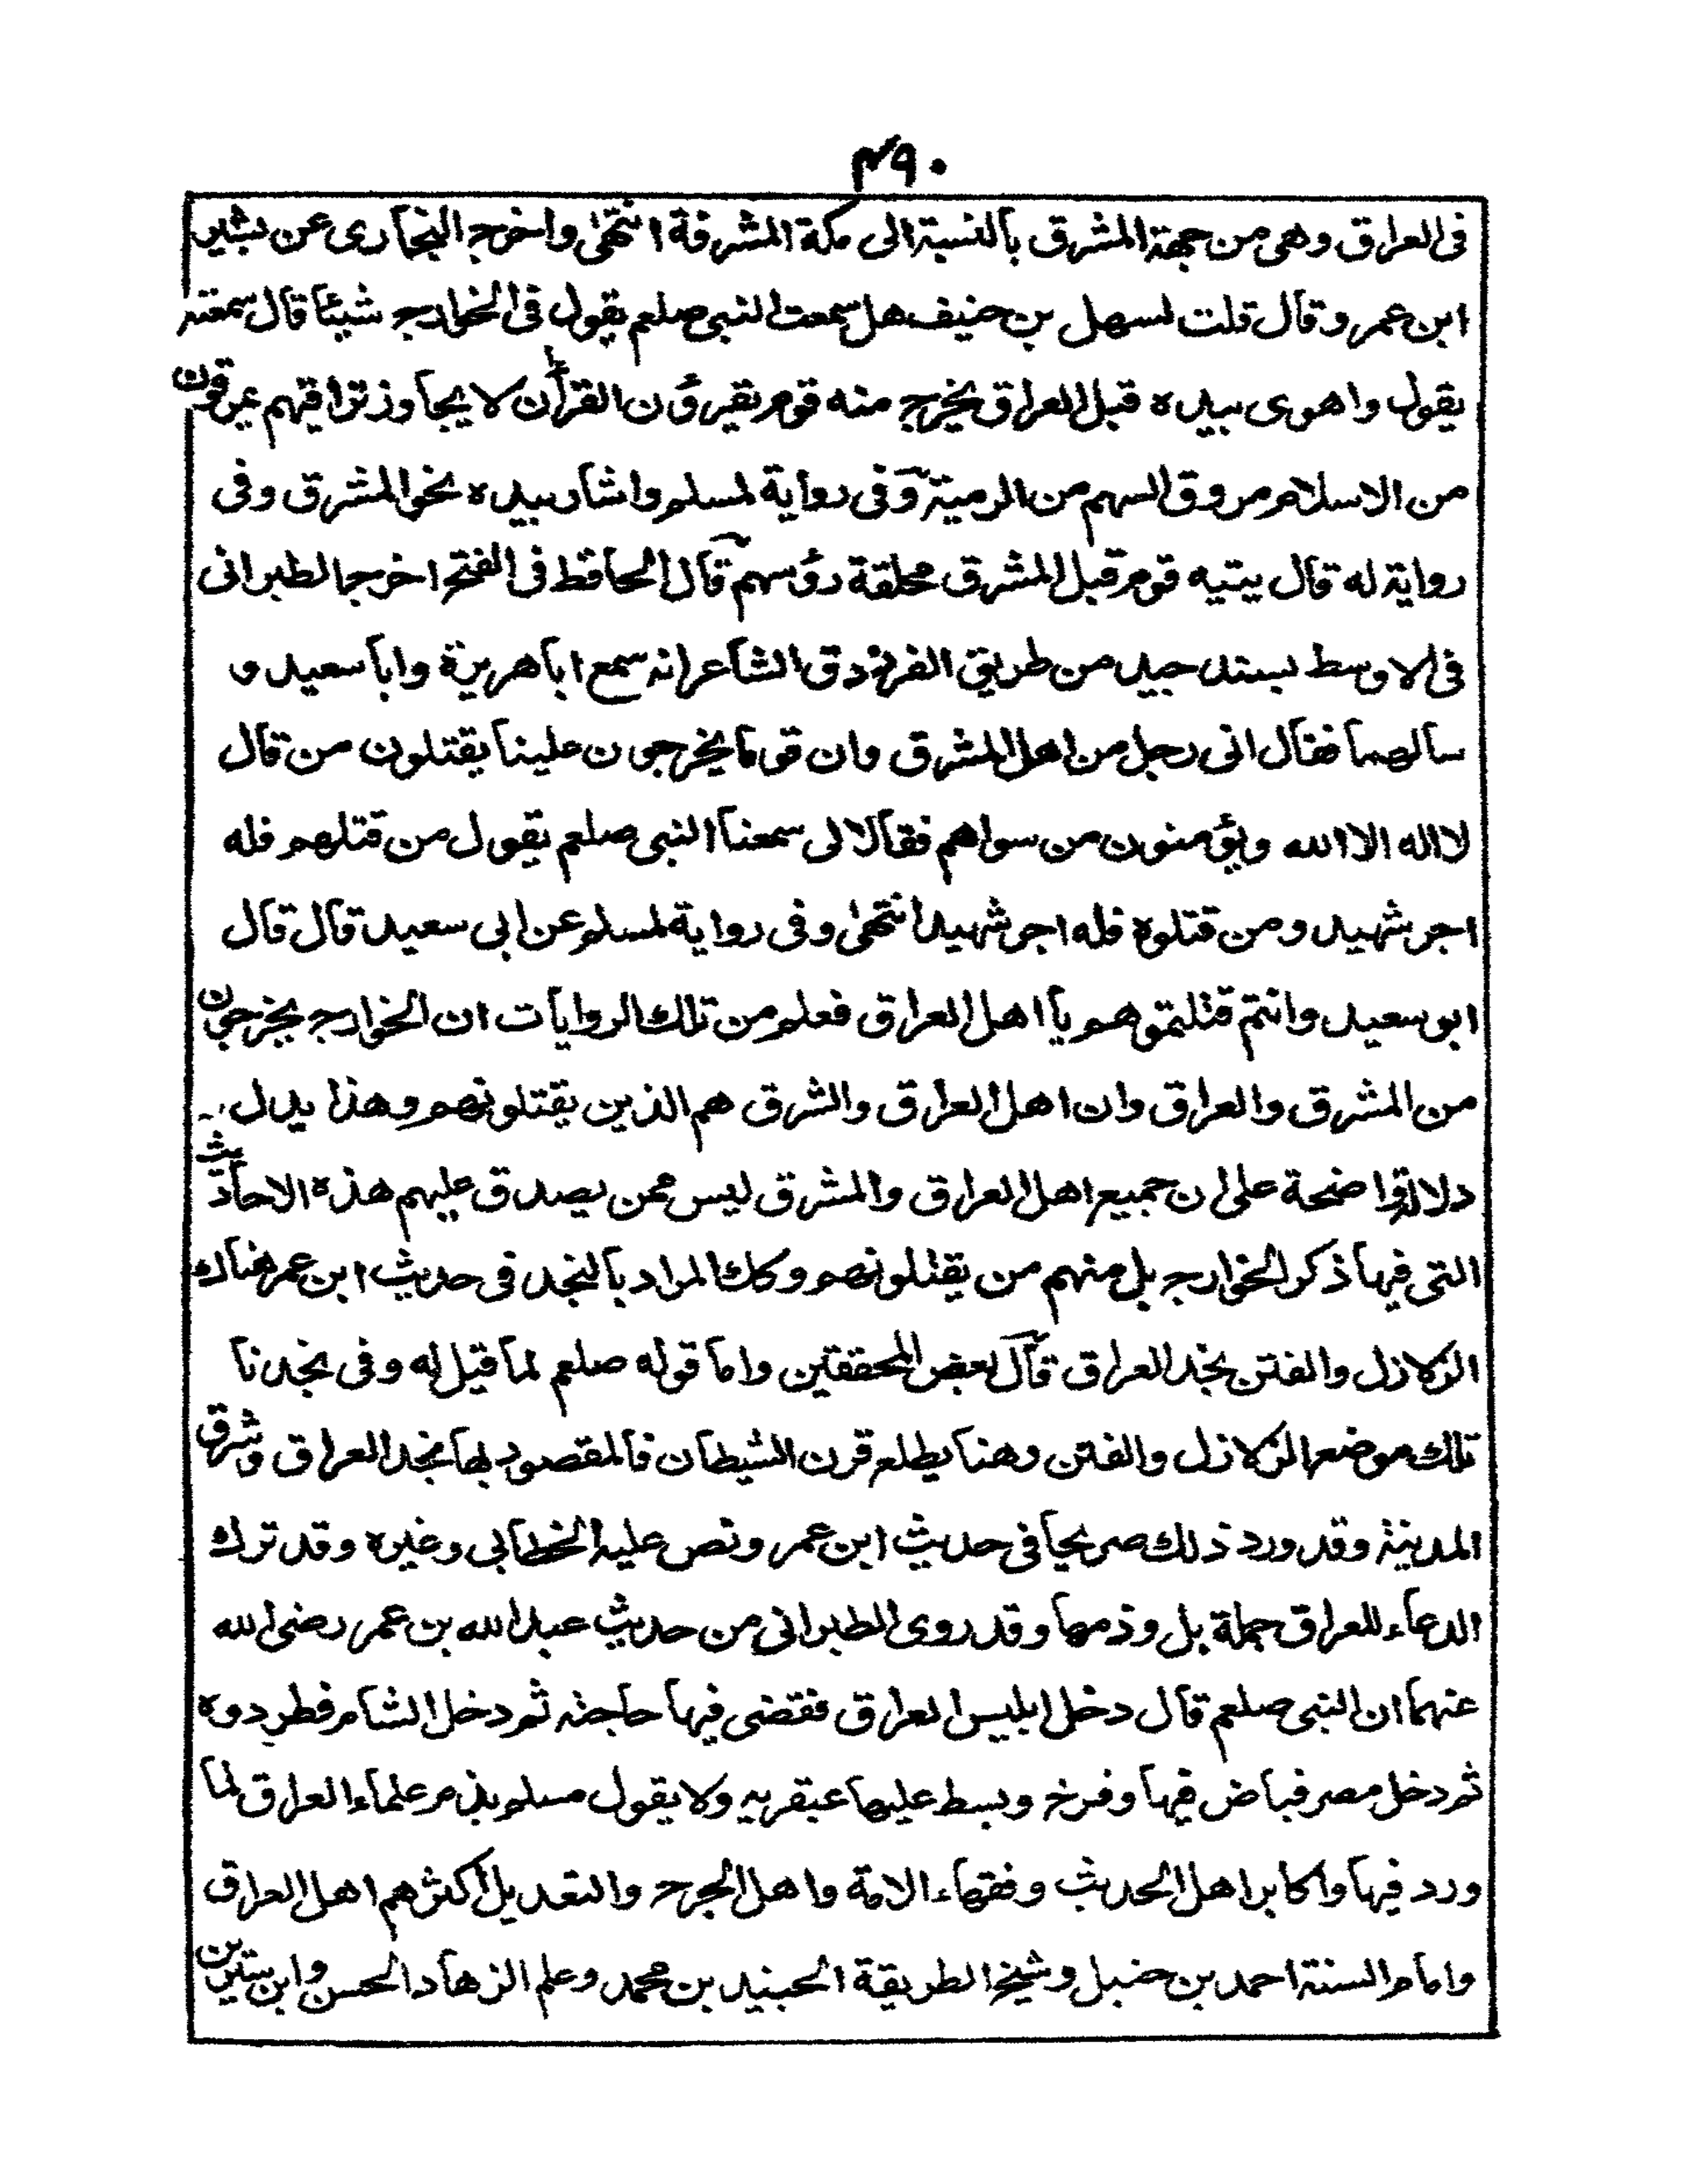 ۴۹۰
فی العراق وهی من جهة المشرق بالنسبة الی مكة المشرفة انتهی واخرج البخاری عن بشیر
ابن عمر وقال قلت لسهل بن حنیف هل سمعت النبی صلعم یقول فی الخوارج شیئا قال سمعته
یقول واهوی بیده قبل العراق یخرج منه قوم یقرؤن القرآن لا یجاوز تراقیهم یمرقون
من الاسلام مروق السهم من الرمیة وفی روایة لمسلم واشار بیده نحو المشرق وفی
روایة له قال یتیه قوم قبل المشرق محلقة رؤسهم قال الحافظ فی الفتح اخرجا الطبرانی
فی الاوسط بسند جید من طریق الفرزدق الشاعر انه سمع اباهریرة وابا سعید و
سالهما فقال انی رجل من اهل المشرق وان قوما یخرجون علینا یقتلون من قال
لااله الاالله ویؤمنون من سواهم فقالا لی سمعنا النبی صلعم یقول من قتلهم فله
اجر شهید ومن قتلوه فله اجر شهید انتهی وفی روایة لمسلم عن ابی سعید قال قال
ابو سعید وانتم قتلتموهم یا اهل العراق فعلم من تلك الروایات ان الخوارج یخرجون
من المشرق والعراق وان اهل العراق والشرق هم الذین یقتلونهم وهذا یدل
دلالة واضحة علی ان جمیع اهل العراق والمشرق لیس ممن یصدق علیهم هذه الاحادیث
التی فیها ذكر الخوارج بل منهم من یقتلونهم وكك المراد بالنجد فی حدیث ابن عمر هناك
الزلازل والفتن نجد العراق قال بعض المحققین واما قوله صلعم لما قیل له وفی نجدنا
تلك موضع الزلازل والفتن وهنا یطلع قرن الشیطان فالمقصود بها نجد العراق وشرق
المدینة وقد ورد ذلك صریحا فی حدیث ابن عمر ونص علیه الخطابی وغیره وقد ترك
الدعاء للعراق جملة بل وذمها وقد روی الطبرانی من حدیث عبد الله بن عمر رضی الله
عنهما ان النبی صلعم قال دخل ابلیس العراق فقضی فیها حاجته ثم دخل الشام فطردوه
ثم دخل مصر فباض فیها وفرخ وبسط علیها عبقریه ولا یقول مسلم بذم علماء العراق لما
ورد فیها واكابر اهل الحدیث وفقهاء الامة واهل الجرح والتعدیل اكثرهم اهل العراق
وامام السنة احمد بن حنبل وشیخ الطریقة الجنید بن محمد وعلم الزهاد الحسن وابن سیرین